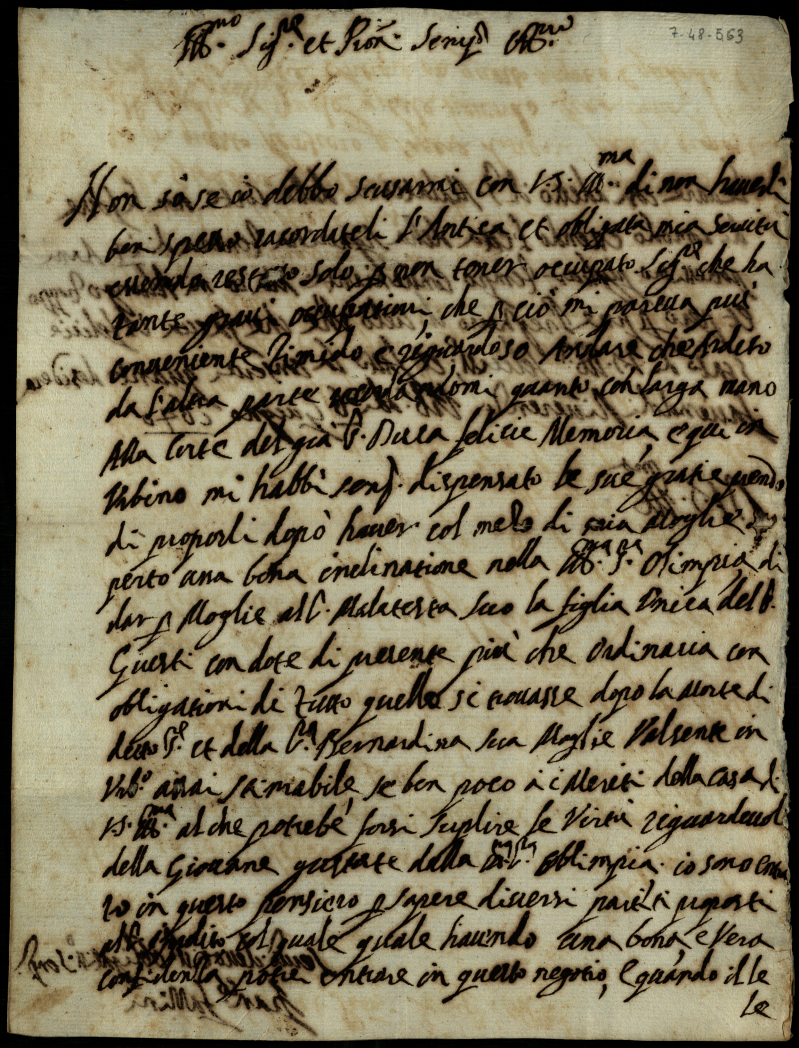 7-48-563
Ill.mo Sig.re et Pron. Semp.
Non so se io debbo scusarmi con V.S. Ill.ma di non haverli
ben spesso racordateli l'Antica et obligata mia Servitù
essendo restato solo p non tener occupato Sig.re che ha
tante gravi occupationi, che p ciò mi pareva più
conveniente timido e riguardoso Andare che Ardito
da l'altra parte quanto con larga mano
Alla Corte del già S. Duca felicie Memoria, e qui in
Urbino mi habbi semp. dispensato le sue gratie
di proporli dopò haver col mezo di mia Moglie
perto una bona inclinatione nella Ill.ma S.ra Olimpia, di
dar p Moglie al S. Malatesta suo la figlia Unica del S.
Giusti con dote di presente più che Ordinaria con
obligationi di tutto quello si trovasse dopo la Morte di
detto S.re et della S.ra Bernardina sua Moglie Valsente in
Urb.o assai stimabile, se ben poco a i Meriti della casa di
V.S. Ill.ma al che potrebe forsi suplire le Virtù riguardevoli
della Giovane gustate dalla Ill.ma S.ra Olimpia. io sono entra
to in questo pensiero p sapere diversi partiti proposti
al S. col quale quale havendo una bona, e vera
confidenza potrei entrare in questo negotio, e quando il le
le